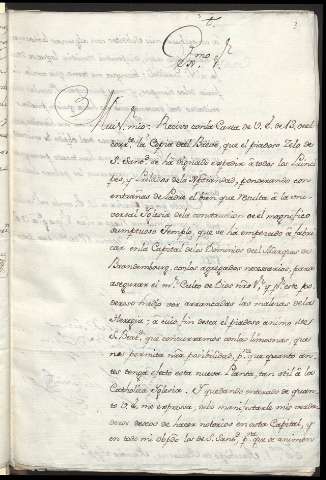 Ill.mo S.r
Muy S.r mio: Recivo con la Carta de V.S. de 18. de el
corr.te la Copia del Breve, que el piadoso Zelo de
S. Sant.d se ha dignado expedir a todos los Princi-
pes, y Prelados de la Xptiandad, ponderando con
entrañas de Padre el bien que resulta à la vni-
versal Yglesia de la construccion de el magnifico
sumptuoso Templo, que se ha empezado a fabri-
car en la Capital de los Dominios del Marques de
Brandemburg, con los agregados necessarios, para
asegurar el m.or Culto de Dios nro S.r y p.r este po-
deroso medio ver arrancadas las malezas de la
Heregia; a cuio fin desea el piadoso animo de
S. Beat.d que concurramos con las limosnas, que
nos permita nra posibilidad, p.ra que quanto an-
tes tenga efecto esta nueva Planta, tan util à la
Catholica Yglesia. Y quedando enterado de quan-
to V.S. me expressa, devo manifestarle mis verda-
deros deseos de hacer notorios en esta Capital, y
en todo mi obpdo los de S. Sant.d p.ra que se animen